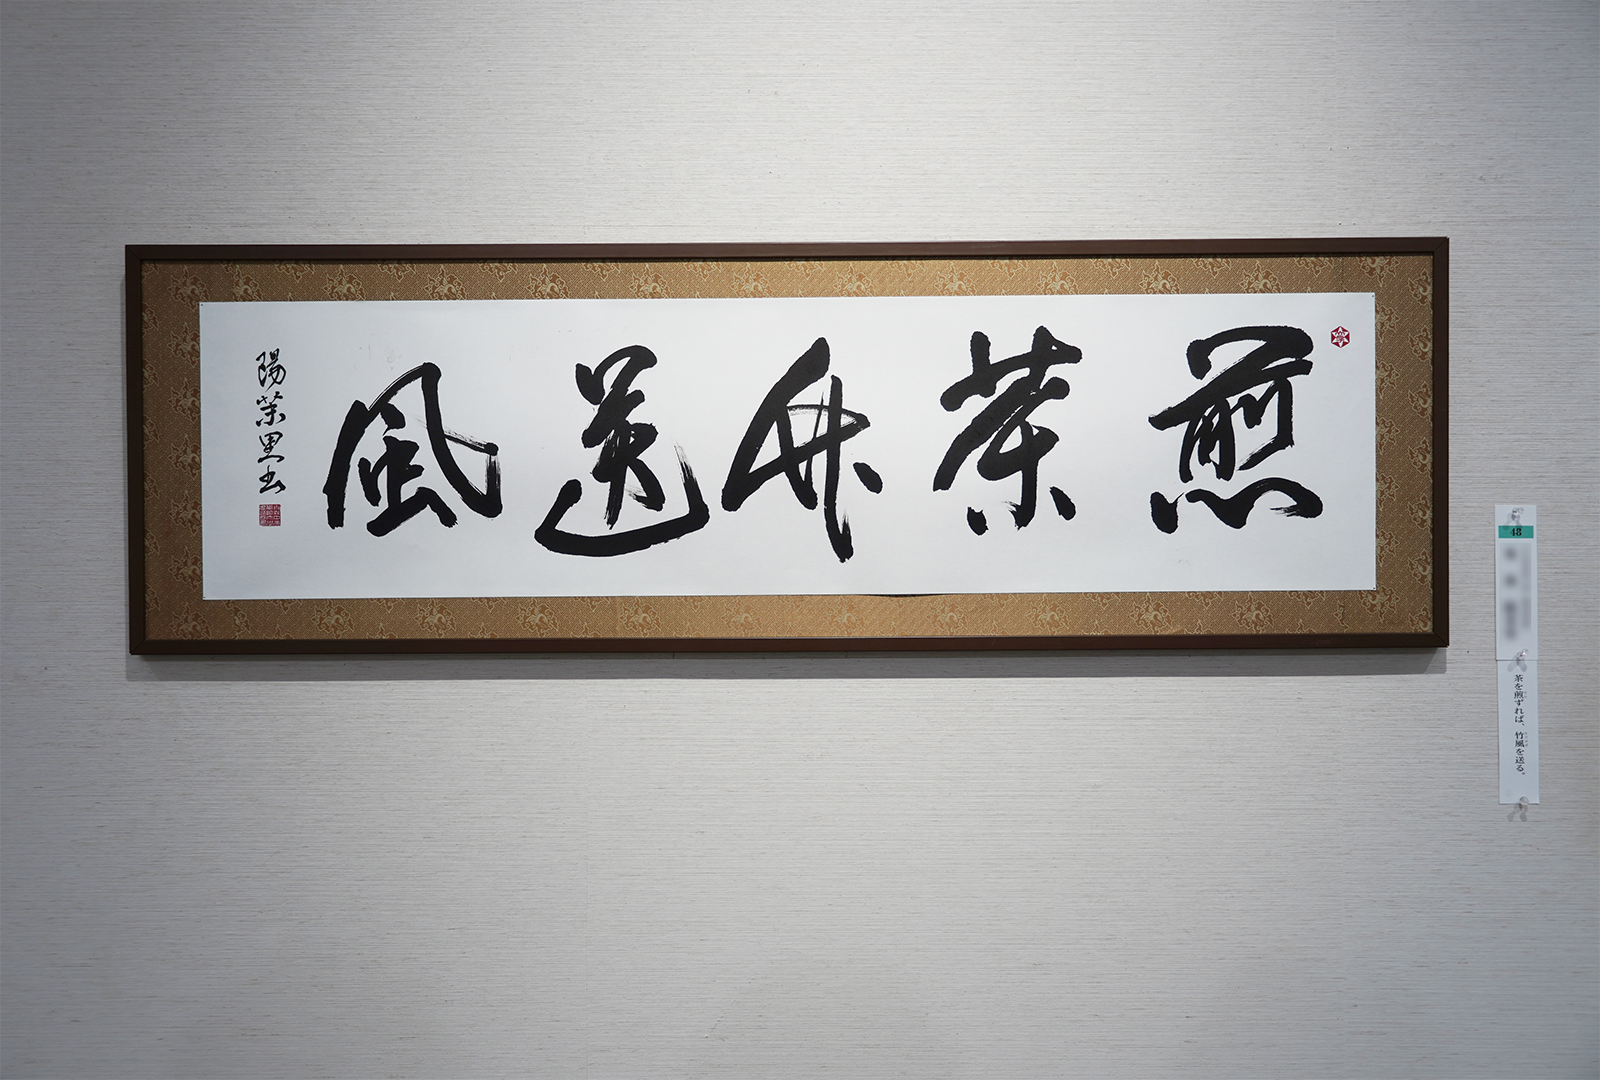 煎茶竹送風
陽菜里書
48
茶を煎ずれば、竹風を送る。